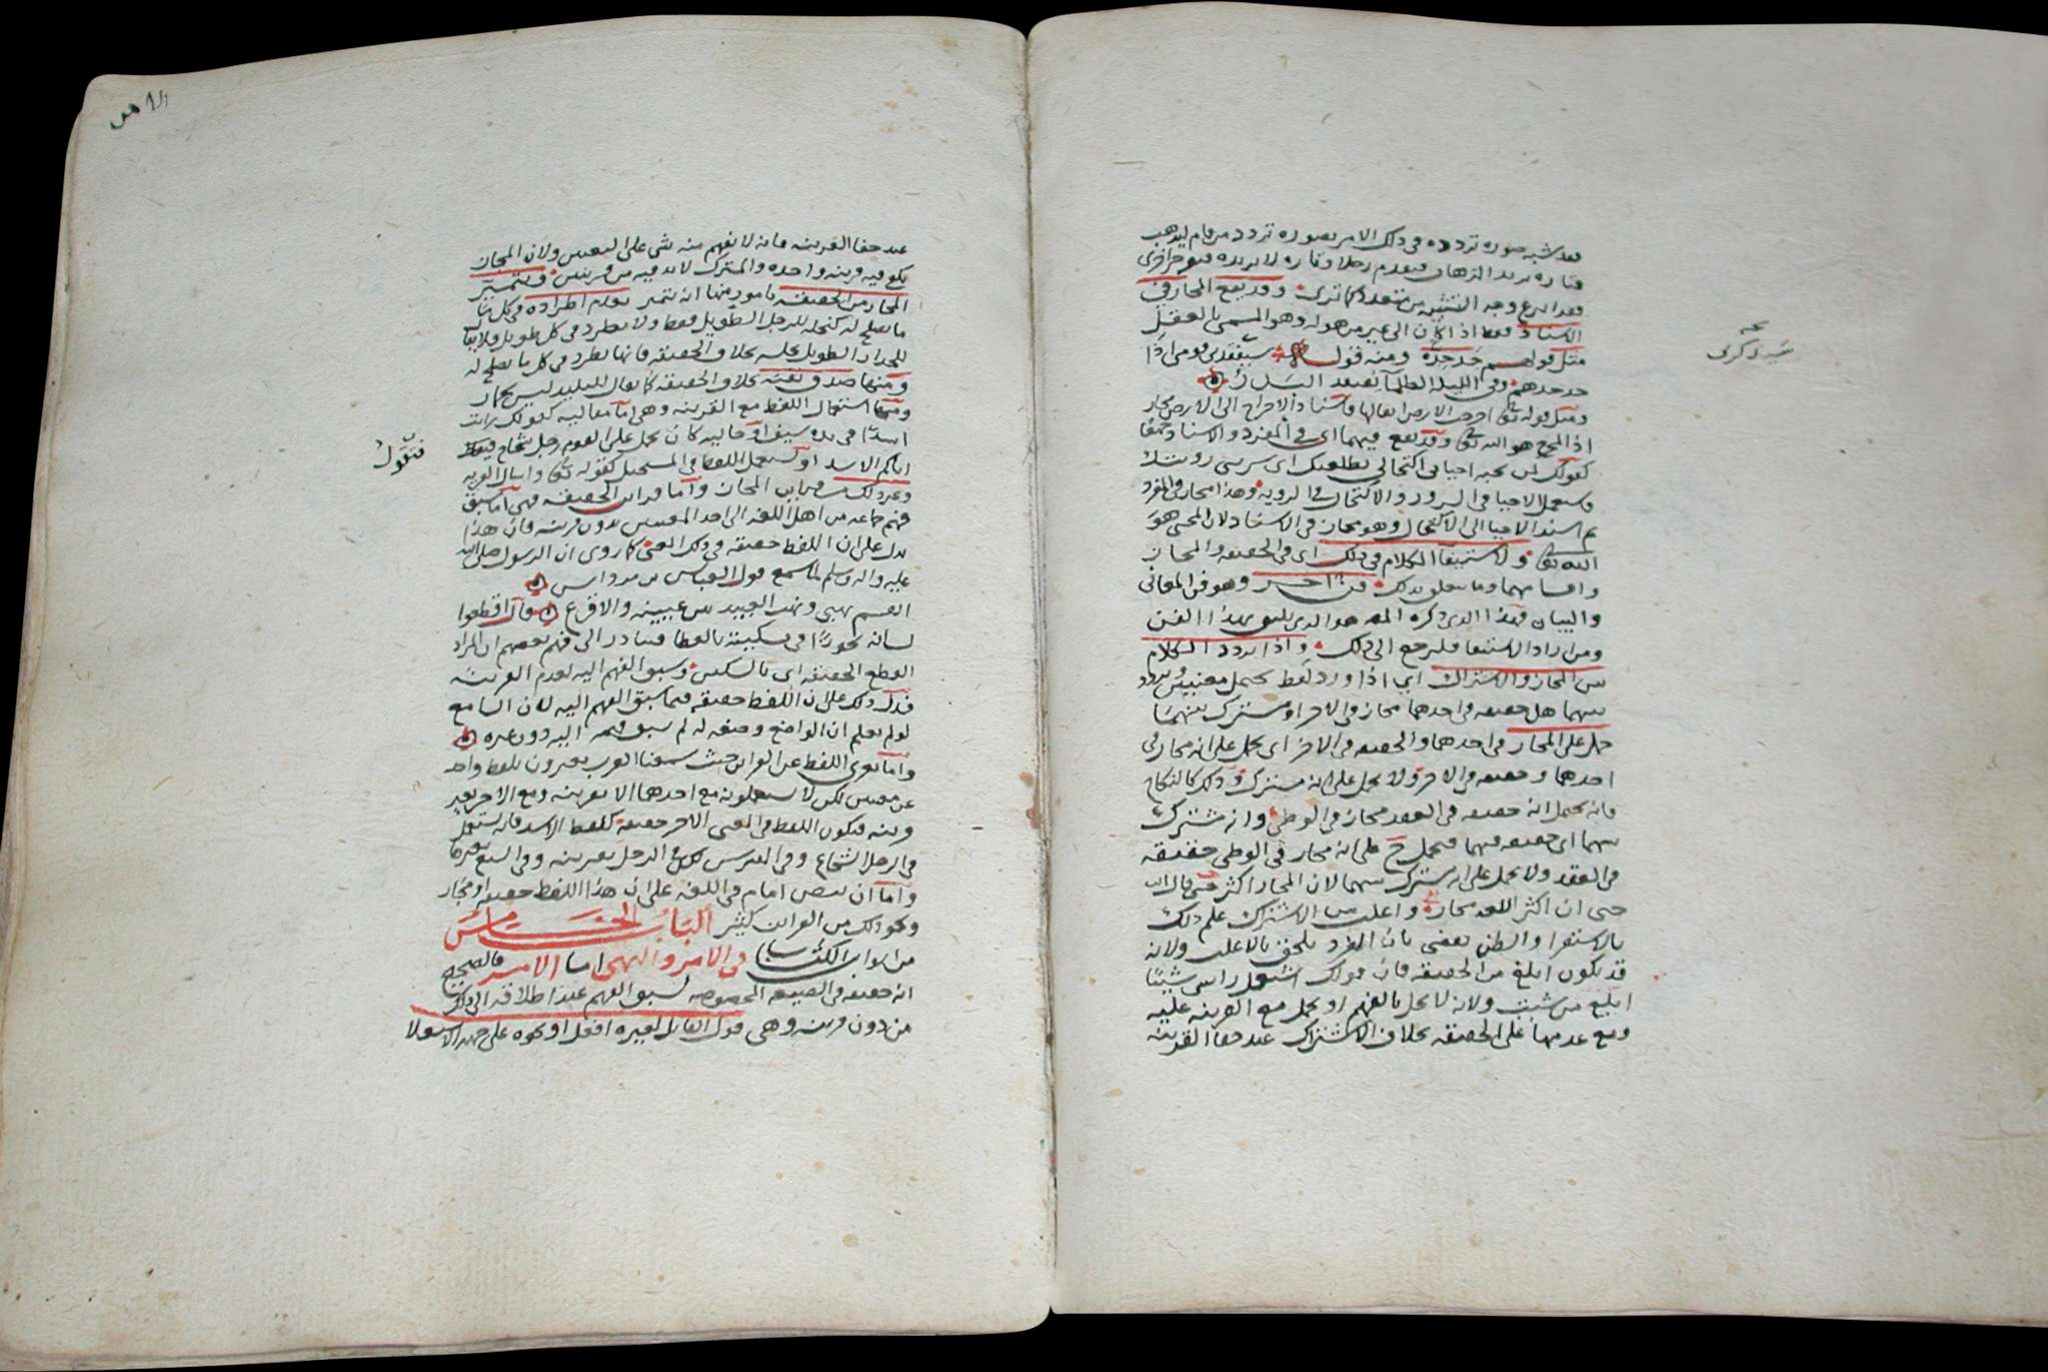 فقد شبه صورة تردده في ذلك الامر بصورة تردد من قام ليذهب
فتارة يريد الذهاب فيقدم رجلا وتارة لا يريده فيوخر اخرى
وجه التشبيه من متعدد كما ترى وقد يقع المجاز في
الاسناد فقط اذا كان الى غير من هو له وهو المسمى بالعقلي
مثل قولهم جد جده ومنه قول سيفقدني قومي اذا
جد جدهم وفي الليلة الظلمآ يفتقد البدر
ومثل قوله تعالى اخرجت الارض اثقالها فاسناد الاخراج الى الارض مجاز
اذ المخرج هو الله تعالى وقد يقع فيهما اي في المفرد والاسناد جميعا
كقولك لمن تحبه احياني اكتحالي بطلعتك اي سرتني رويتك
فاستعمل الاحيا في السرور والاكتحال في الروية وهذا مجاز في المفرد
ثم اسند الاحيا الى الاكتحال وهو مجاز في الاسناد لان المحيي هو
الله تعالى ولاستيفآ الكلام في ذلك اي في الحقيقة والمجاز
واقسامهما وما يتعلق بذلك فن اخر وهو فن المعاني
والبيان فهذا الذي ذكره المص هو الذي يليق بهذا الفن
ومن اراد الاستيفا فليرجع الى ذلك واذا تردد الكلام
بين المجاز والاشتراك اي اذا ورد لفظ يحتمل معنيين وتردد
بينهما هل حقيقة في احدهما مجاز في الاخر او مشترك بينهما
حمل على المجاز في احدهما والحقيقة في الاخر اي يحمل على انه مجاز في
احدهما وحقيقة في الاخر ولا يحمل على انه مشترك وذلك كالنكاح
فانه يحتمل انه حقيقة في العقد مجاز في الوطي وانه مشترك
بينهما اي حقيقة فيهما فيحمل ح على انه مجاز في الوطي حقيقة
في العقد ولا يحمل على انه مشترك بينهما لان المجاز اكثر حتى قال
حتى ان اكثر اللغة مجاز واغلب من الاشتراك علم ذلك
بالاستقرا والظن يقضي بان الفرد يلحق بالاغلب ولانه
قد يكون ابلغ من الحقيقة فان قولك اشتعل راسي شيبا
ابلغ من شبت ولانه لا يخل بالفهم اذ يحمل مع القرينة عليه
ومع عدمها على الحقيقة بخلاف الاشتراك عند خفا القرينة
عند خفا القرينة فانه لا يفهم منه شي على التعيين ولان المجاز
يكفي فيه قرينة واحدة والمشترك لا بد فيه من قرينتين ويتميز
المجاز من الحقيقة بامور منها انه يتميز بعدم اطراده في كل ما
ما يصلح له كنخلة للرجل الطويل فقط ولا يطرد في كل طويل فلا يقال
للجدار الطويل نخلة بخلاف الحقيقة فانها تطرد في كل ما يصلح له
ومنها صدق نفيه بخلاف الحقيقة كما يقال للبليد ليس بحمار
ومنها استعمال اللفظ مع القرينة وهي اما مقالية كقولك رايت
اسدا في يده سيف او حالية كان يحمل على القوم رجل شجاع فيقول
فيقول
اتاكم الاسد او يستعمل اللفظ في المستحيل كقوله تعالى واسال القرية
ونحو ذلك من قراين المجاز واما قراين الحقيقة فهي اما سبق
فهم جماعة من اهل اللغة الى احد المعنيين بدون قرينة فان هذا
يدل على ان اللفظ حقيقة في ذلك المعنى كما روي ان الرسول صلى الله
عليه واله وسلم لما سمع قول العباس بن مرداس
اتقسم نهبي ونهب العبيد بين عيينة والاقرع قال اقطعوا
لسانه تجوزا في تسكيته بالعطا فتبادر الى فهم بعضهم ان المراد
القطع الحقيقة اي بالسكين وسبق الفهم اليه لعدم القرينة
فدل ذلك على ان اللفظ حقيقة فيما سبق الفهم اليه لان السامع
لو لم يعلم ان الواضع وضعه له لم يسبق فهمه اليه دون غيره
واما تعري اللفظ عن القراين حيث سمعنا العرب يعبرون بلفظ واحد
عن معنيين لكن لا يستعملونه مع احدهما الا بقرينة ومع الاخر بغير
قرينة فيكون اللفظ في المعنى الاخر حقيقة كلفظ الاسد فانه يستعمل
في الرجل الشجاع وفي المفترس لكن في الرجل بقرينة وفي السبع بغيرها
واما ان ينص امام في اللغة على ان هذا اللفظ حقيقة او مجاز
ونحو ذلك من القراين كثير الباب الخامس
من ابواب الكتاب في الامر والنهي اما الامر فالصحيح
انه حقيقة في الصيغة المخصوصة لسبق الفهم عند اطلاقه الى ذلك
من دون قرينة وهي قول القايل لغيره افعل او نحوه على جهة الاستعلا